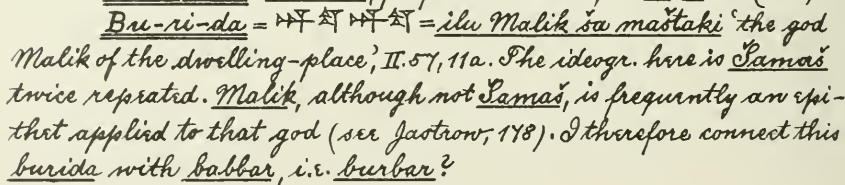 Bu-ri-da = 𒀭𒌓 𒀭𒌓 = ilu Malik ša maštaki 'the god
Malik of the dwelling-place', II. 57, 11a. The ideogr. here is Šamaš
twice repeated. Malik, although not Šamaš, is frequently an epi-
thet applied to that god (see Jastrow, 178). I therefore connect this
burida with babbar, i.e. burbar?